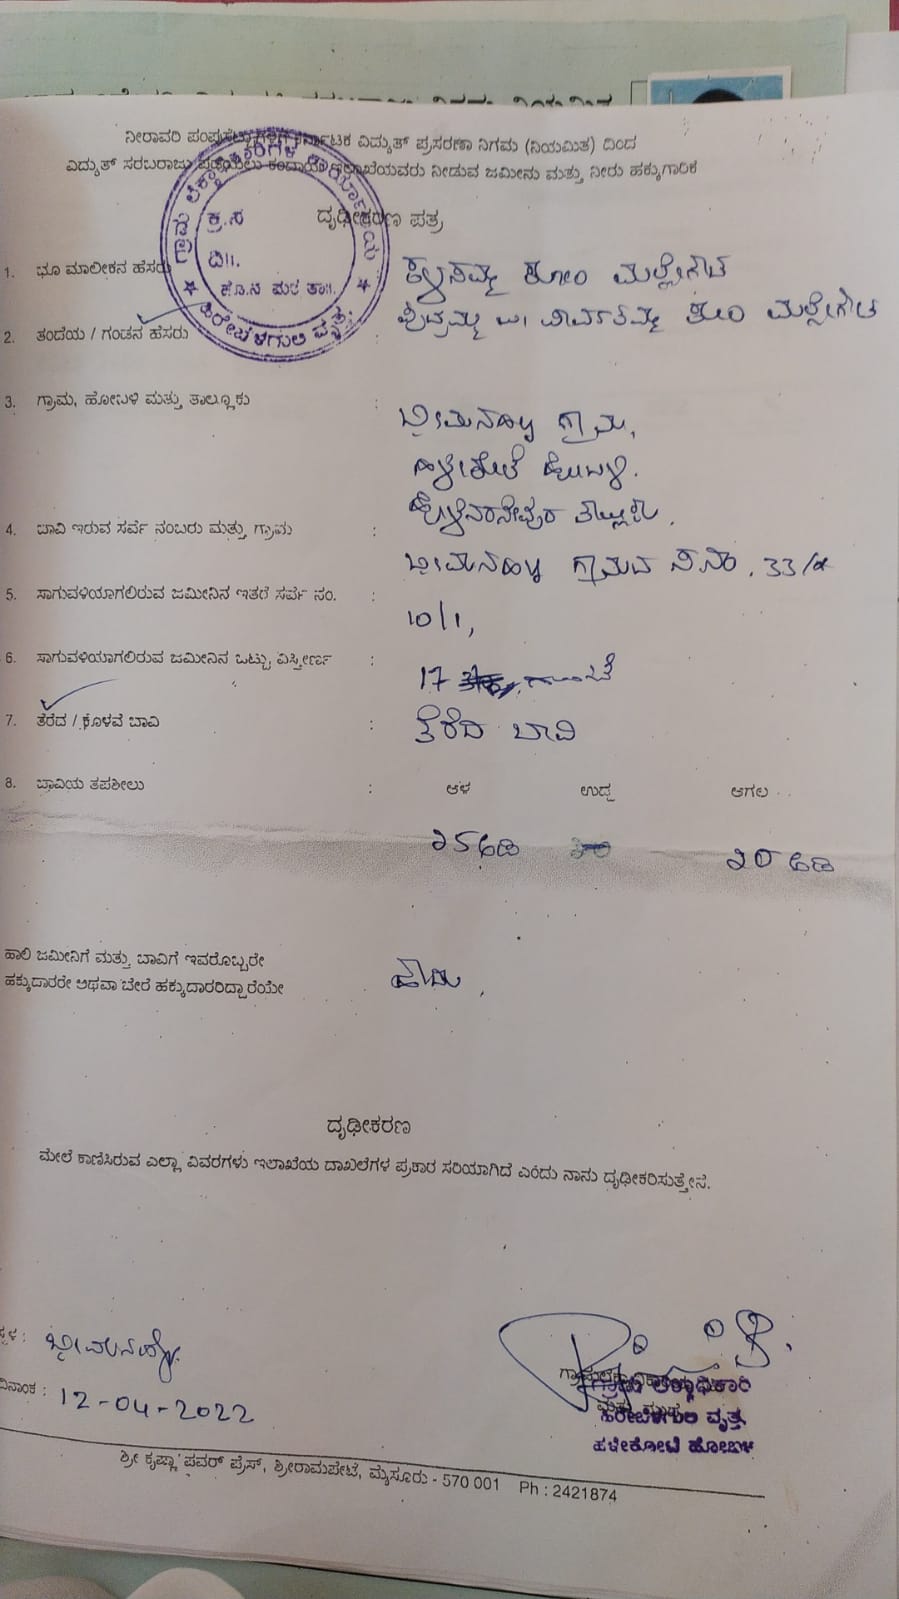 ನೀರಾವರಿ ಪಂಪುಸೆಟ್ಟುಗಳಿಗೆ ಕರ್ನಾಟಕ ವಿದ್ಯುತ್ ಪ್ರಸರಣಾ ನಿಗಮ (ನಿಯಮಿತ) ದಿಂದ
ವಿದ್ಯುತ್ ಸರಬರಾಜು ಪಡೆಯಲು ಕಂದಾಯ ಇಲಾಖೆಯವರು ನೀಡುವ ಜಮೀನು ಮತ್ತು ನೀರು ಹಕ್ಕುಗಾರಿಕೆ
ದೃಢೀಕರಣ ಪತ್ರ
ಗ್ರಾಮ ಲೆಕ್ಕಾಧಿಕಾರಿಗಳ ಕಾರ್ಯಾಲಯ
ಕ್ರ.ಸ
ದಿ||.
ಹಿರೇಬೆಳಗುಲಿ ವೃತ್ತ.
1. ಭೂ ಮಾಲೀಕನ ಹೆಸರು ಕೋಂ ಮಲ್ಲೇಗೌಡ
2. ತಂದೆಯ / ಗಂಡನ ಹೆಸರು : ಕೋಂ ಮಲ್ಲೇಗೌಡ
3. ಗ್ರಾಮ, ಹೋಬಳಿ ಮತ್ತು ತಾಲ್ಲೂಕು : ಭೀಮನಹಳ್ಳಿ ಗ್ರಾಮ,
ಹಳೇಕೋಟೆ ಹೋಬಳಿ.
ಹೊಳೆನರಸೀಪುರ ತಾಲ್ಲೂಕು.
4. ಬಾವಿ ಇರುವ ಸರ್ವೆ ನಂಬರು ಮತ್ತು ಗ್ರಾಮ : ಭೀಮನಹಳ್ಳಿ ಗ್ರಾಮದ ಸ.ನಂ. 33/
5. ಸಾಗುವಳಿಯಾಗಲಿರುವ ಜಮೀನಿನ ಇತರೆ ಸರ್ವೆ ನಂ. : 10/1,
6. ಸಾಗುವಳಿಯಾಗಲಿರುವ ಜಮೀನಿನ ಒಟ್ಟು ವಿಸ್ತೀರ್ಣ : 17 ಗುಂಟೆ
7. ತೆರೆದ / ಕೊಳವೆ ಬಾವಿ : ತೆರೆದ ಬಾವಿ
8. ಬಾವಿಯ ತಪಶೀಲು : ಆಳ ಉದ್ದ ಅಗಲ
೨5 ಅಡಿ ೨0 ಅಡಿ
ಹಾಲಿ ಜಮೀನಿಗೆ ಮತ್ತು ಬಾವಿಗೆ ಇವರೊಬ್ಬರೇ
ಹಕ್ಕುದಾರರೇ ಅಥವಾ ಬೇರೆ ಹಕ್ಕುದಾರರಿದ್ದಾರೆಯೇ ಹೌದು,
ದೃಢೀಕರಣ
ಮೇಲೆ ಕಾಣಿಸಿರುವ ಎಲ್ಲಾ ವಿವರಗಳು ಇಲಾಖೆಯ ದಾಖಲೆಗಳ ಪ್ರಕಾರ ಸರಿಯಾಗಿದೆ ಎಂದು ನಾನು ದೃಢೀಕರಿಸುತ್ತೇನೆ.
ಸ್ಥಳ : ಭೀಮನಹಳ್ಳಿ
ದಿನಾಂಕ : 12-04-2022
ಗ್ರಾಮ ಲೆಕ್ಕಾಧಿಕಾರಿ
ಹಿರೇಬೆಳಗುಲಿ ವೃತ್ತ
ಹಳೇಕೋಟೆ ಹೋಬಳಿ
ಶ್ರೀ ಕೃಷ್ಣಾ ಪವರ್ ಪ್ರೆಸ್, ಶ್ರೀರಾಮಪೇಟೆ, ಮೈಸೂರು - 570 001 Ph : 2421874